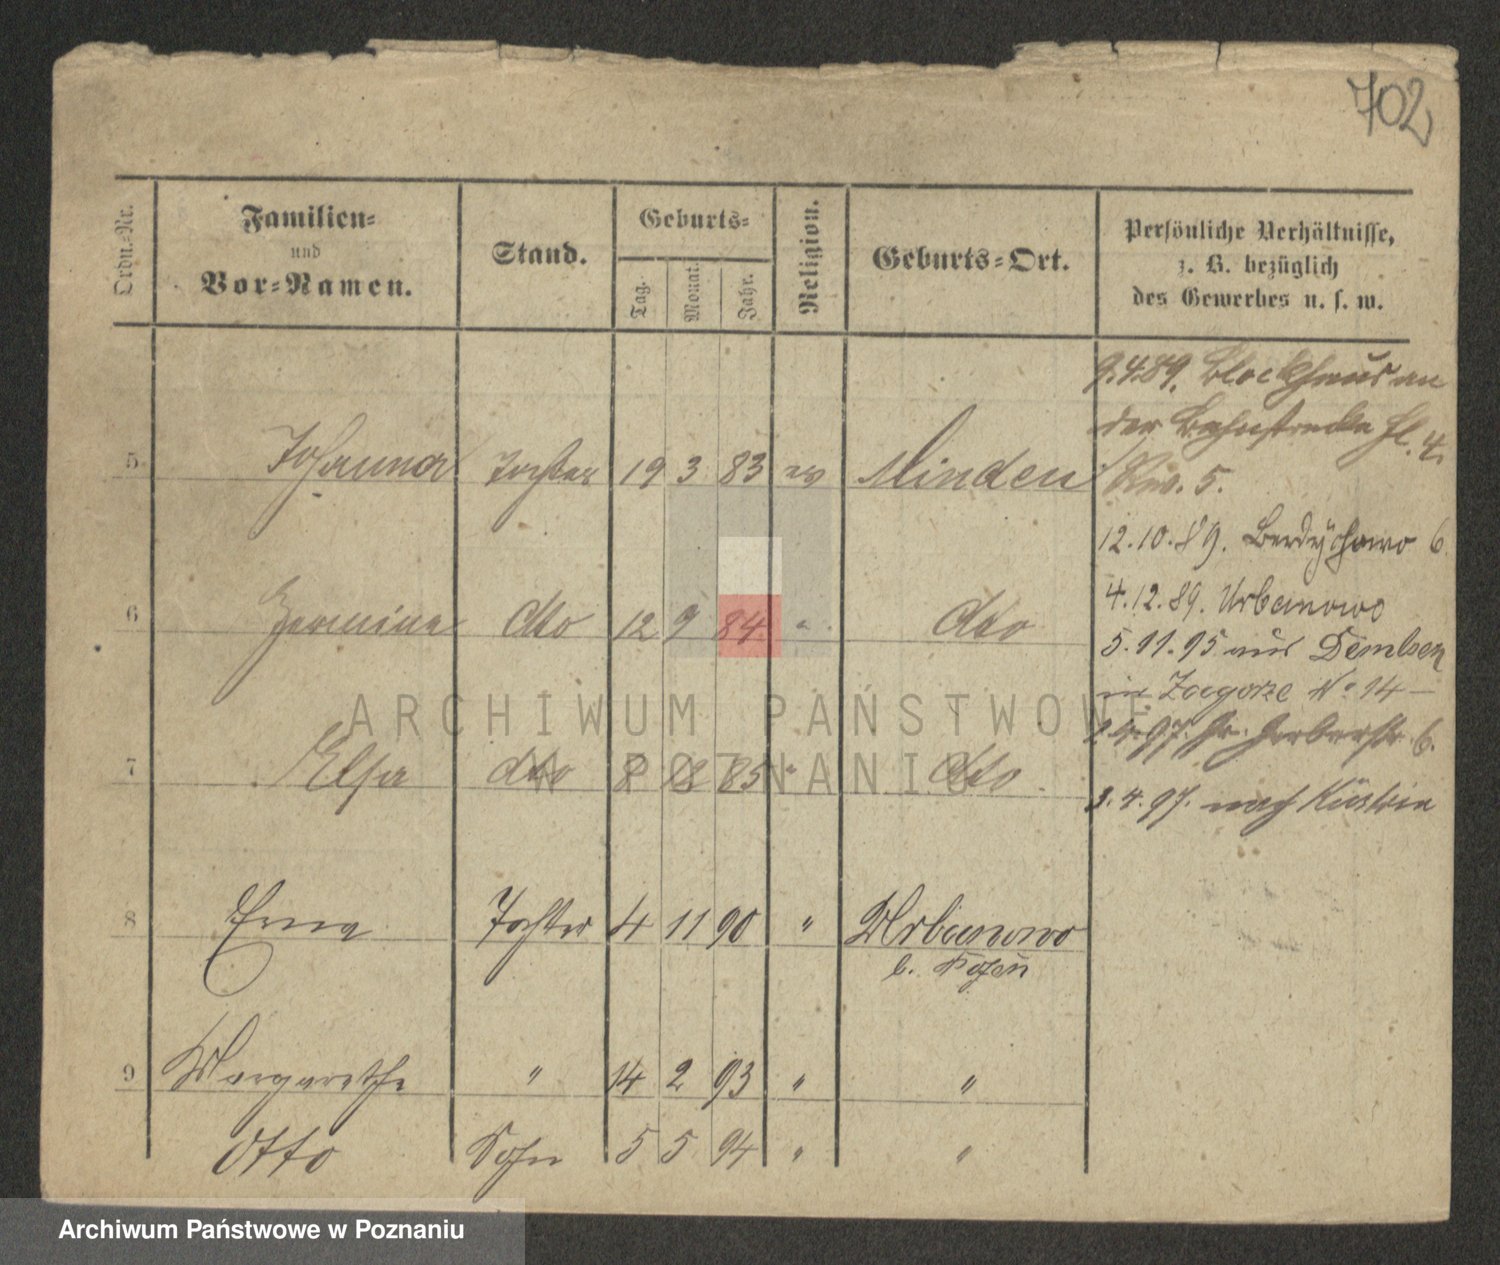 702
Ordn.-Nr.
Familien-
und
Vor-Namen.
Stand.
Geburts-
Tag.
Monat.
Jahr.
Religion.
Geburts-Ort.
Persönliche Verhältnisse,
z. B. bezüglich
des Gewerbes u. s. w.
9.4.89. Blockhaus an
der Bahnstrecke
4.
5.
5. Johanna Tochter 19 3 83 ev Minden
12.10.89. Berdychowo 6.
4.12.89. Urbanowo
6 Hermine dto 12 9 84 " dto
5.11.95 aus Demsen
in Zagorze No 14 —
2.4.97. Gr. Gerberstr. 6.
7 Elsa dto 8 8 85 " dto
3.4.97. nach Küstrin
8 Erna Tochter 4 11 90 " Urbanowo
b. Posen
9 Margarethe " 14 2 93 " "
Otto Sohn 5 5 94 " "
ARCHIWUM PAŃSTWOWE
W POZNANIU
Archiwum Państwowe w Poznaniu